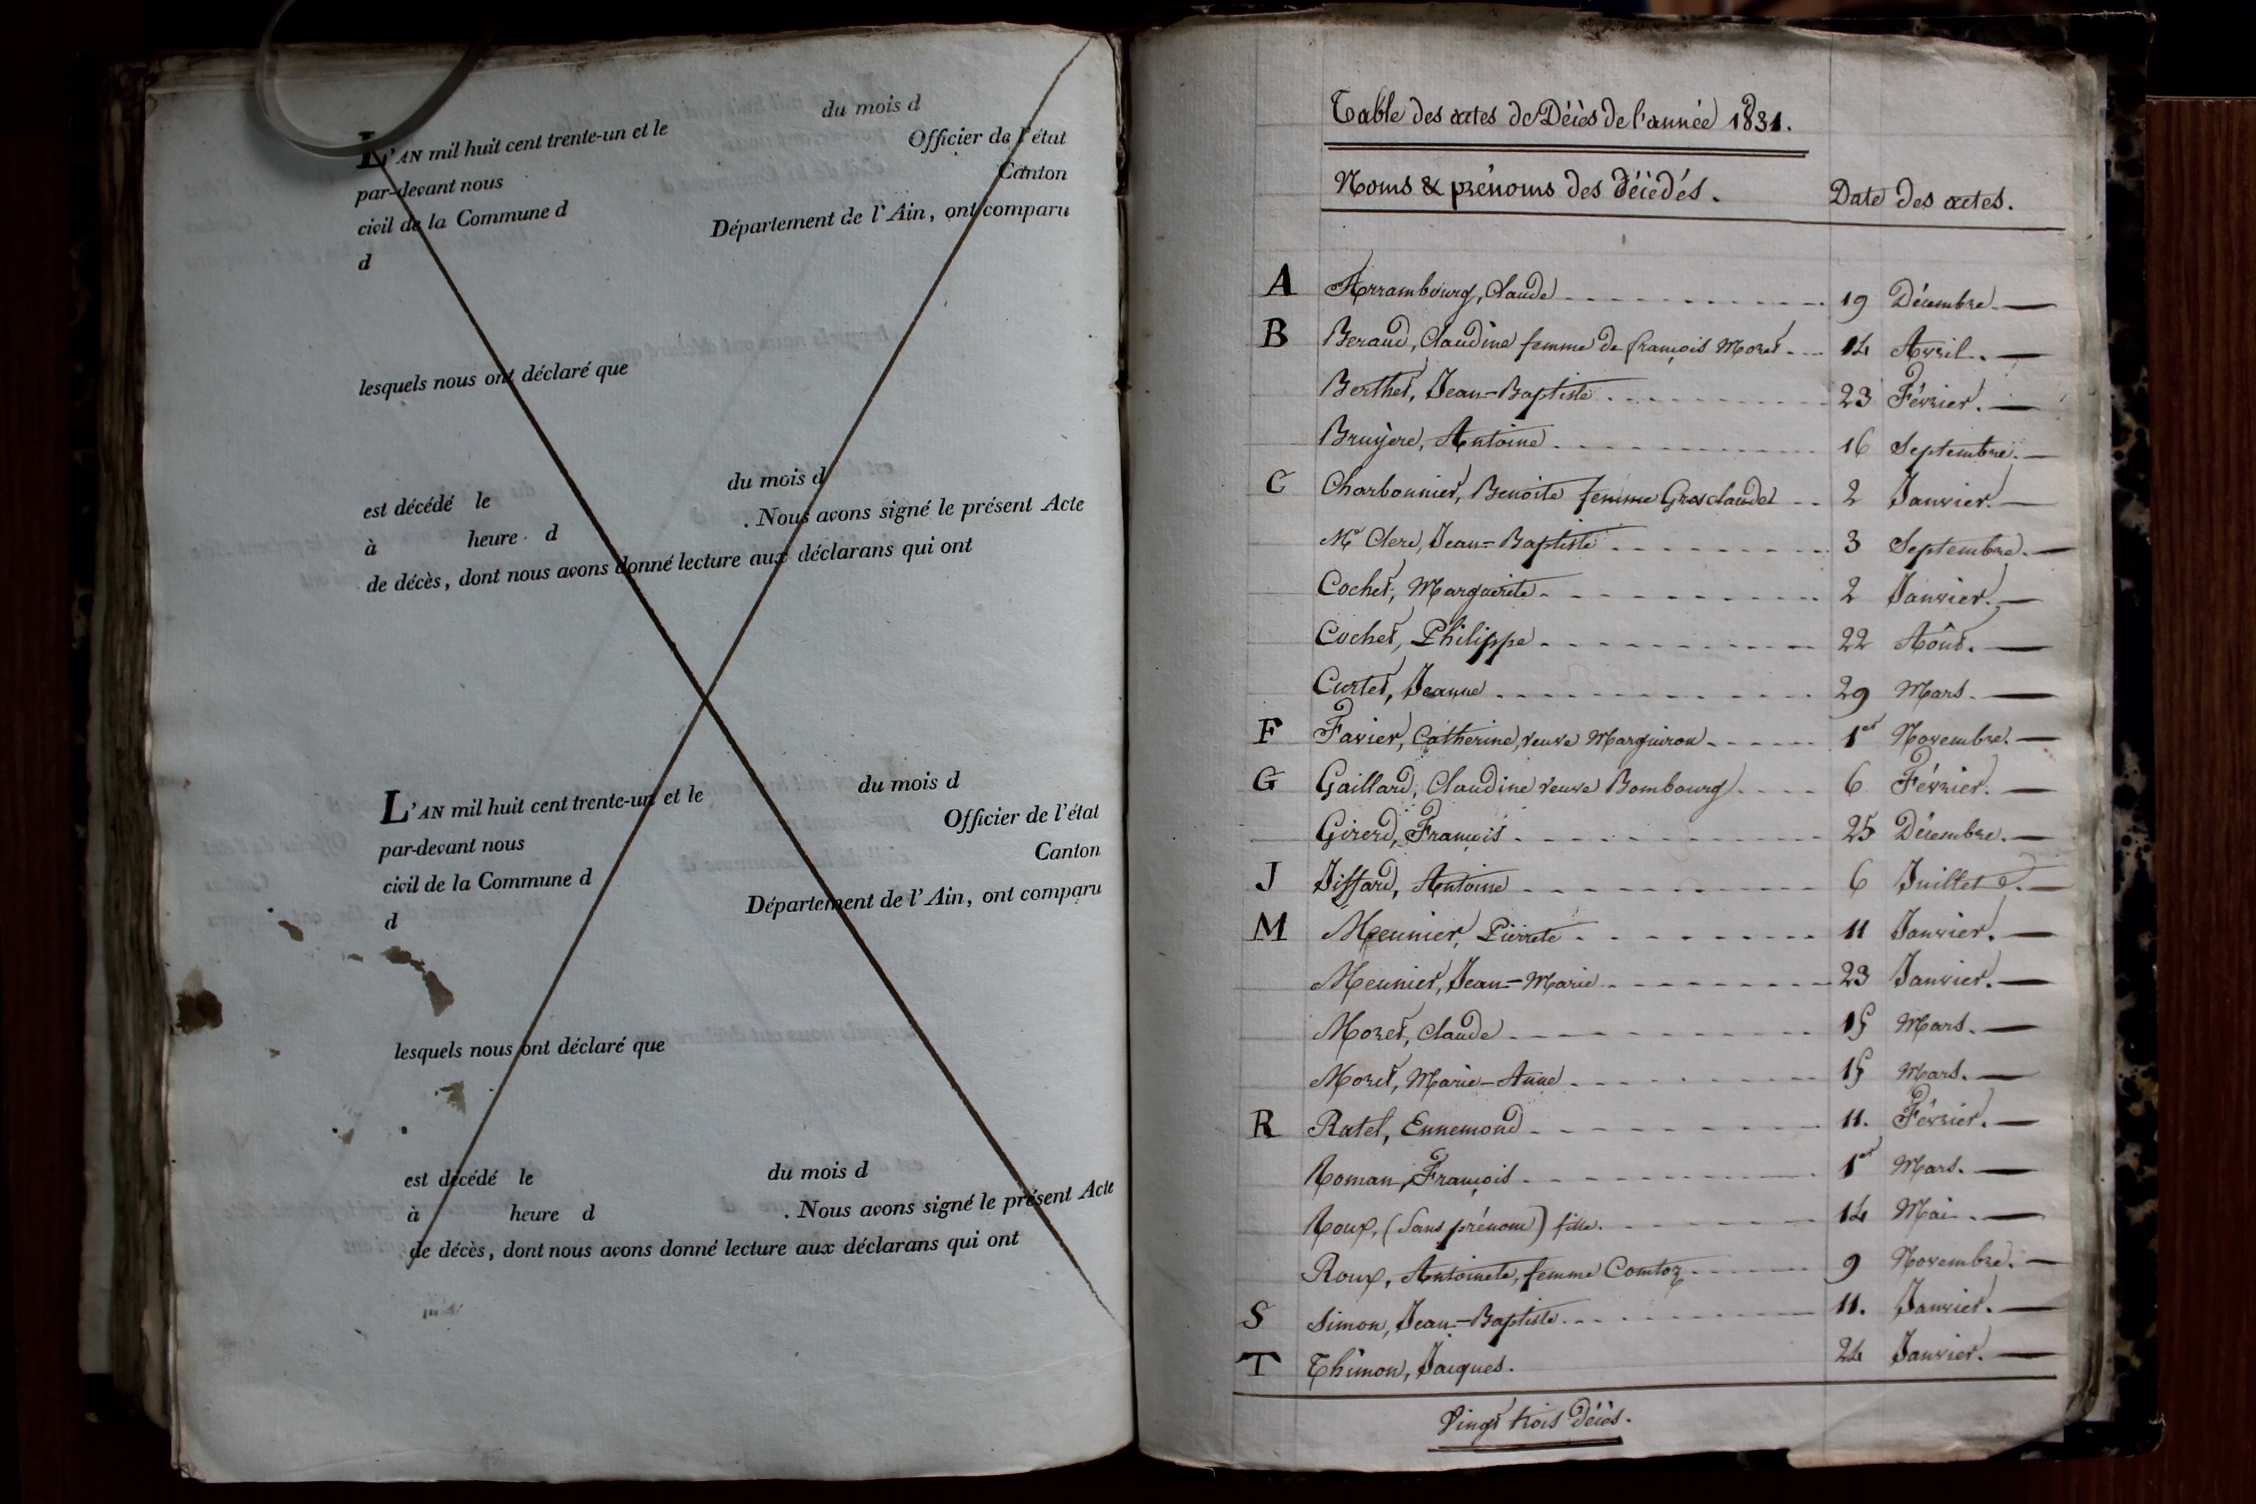 du mois d
L'AN mil huit cent trente-un et le
Officier de l'état
par-devant nous
Canton
civil de la Commune d
Département de l'Ain, ont comparu
d
lesquels nous ont déclaré que
est décédé le du mois d
à heure d . Nous avons signé le présent Acte
de décès, dont nous avons donné lecture aux déclarans qui ont
L'AN mil huit cent trente-un et le du mois d
par-devant nous Officier de l'état
civil de la Commune d Canton
d Département de l'Ain, ont comparu
lesquels nous ont déclaré que
est décédé le du mois d
à heure d . Nous avons signé le présent Acte
de décès, dont nous avons donné lecture aux déclarans qui ont
Table des actes de Décès de l'année 1831.
Noms & prénoms des décédés. Date des actes.
A Arrambourg, Claude 19 Décembre.
B Beraud, Claudine femme de françois Moret 14 Avril.
Berthet, Jean-Baptiste 23 Février.
Bruyere, Antoine 16 Septembre.
C Charbonnier, Benoite femme Grosclaude 2 Janvier.
Mr Clerc, Jean-Baptiste 3 Septembre.
Cochet, Marguerite 2 Janvier.
Cochet, Philippe 22 Août.
Curtet, Jeanne 29 Mars.
F Favier, Catherine, veuve Marguiron 1er Novembre.
G Gaillard, Claudine veuve Bombourg 6 Février.
Girerd, François 25 Décembre.
J Jiffard, Antoine 6 Juillet.
M Meunier, Pierrete 11 Janvier.
Meunier, Jean-Marie 23 Janvier.
Moret, Claude 15 Mars.
Moret, Marie-Anne 15 Mars.
R Ratel, Ennemond 11. Février.
Roman, François 1er Mars.
Roux, (Sans prénom) fille. 14 Mai.
Roux, Antoinete, femme Comtoz 9 Novembre.
S Simon, Jean-Baptiste 11. Janvier.
T Thimon, Jacques. 24 Janvier.
Vingt trois décès.